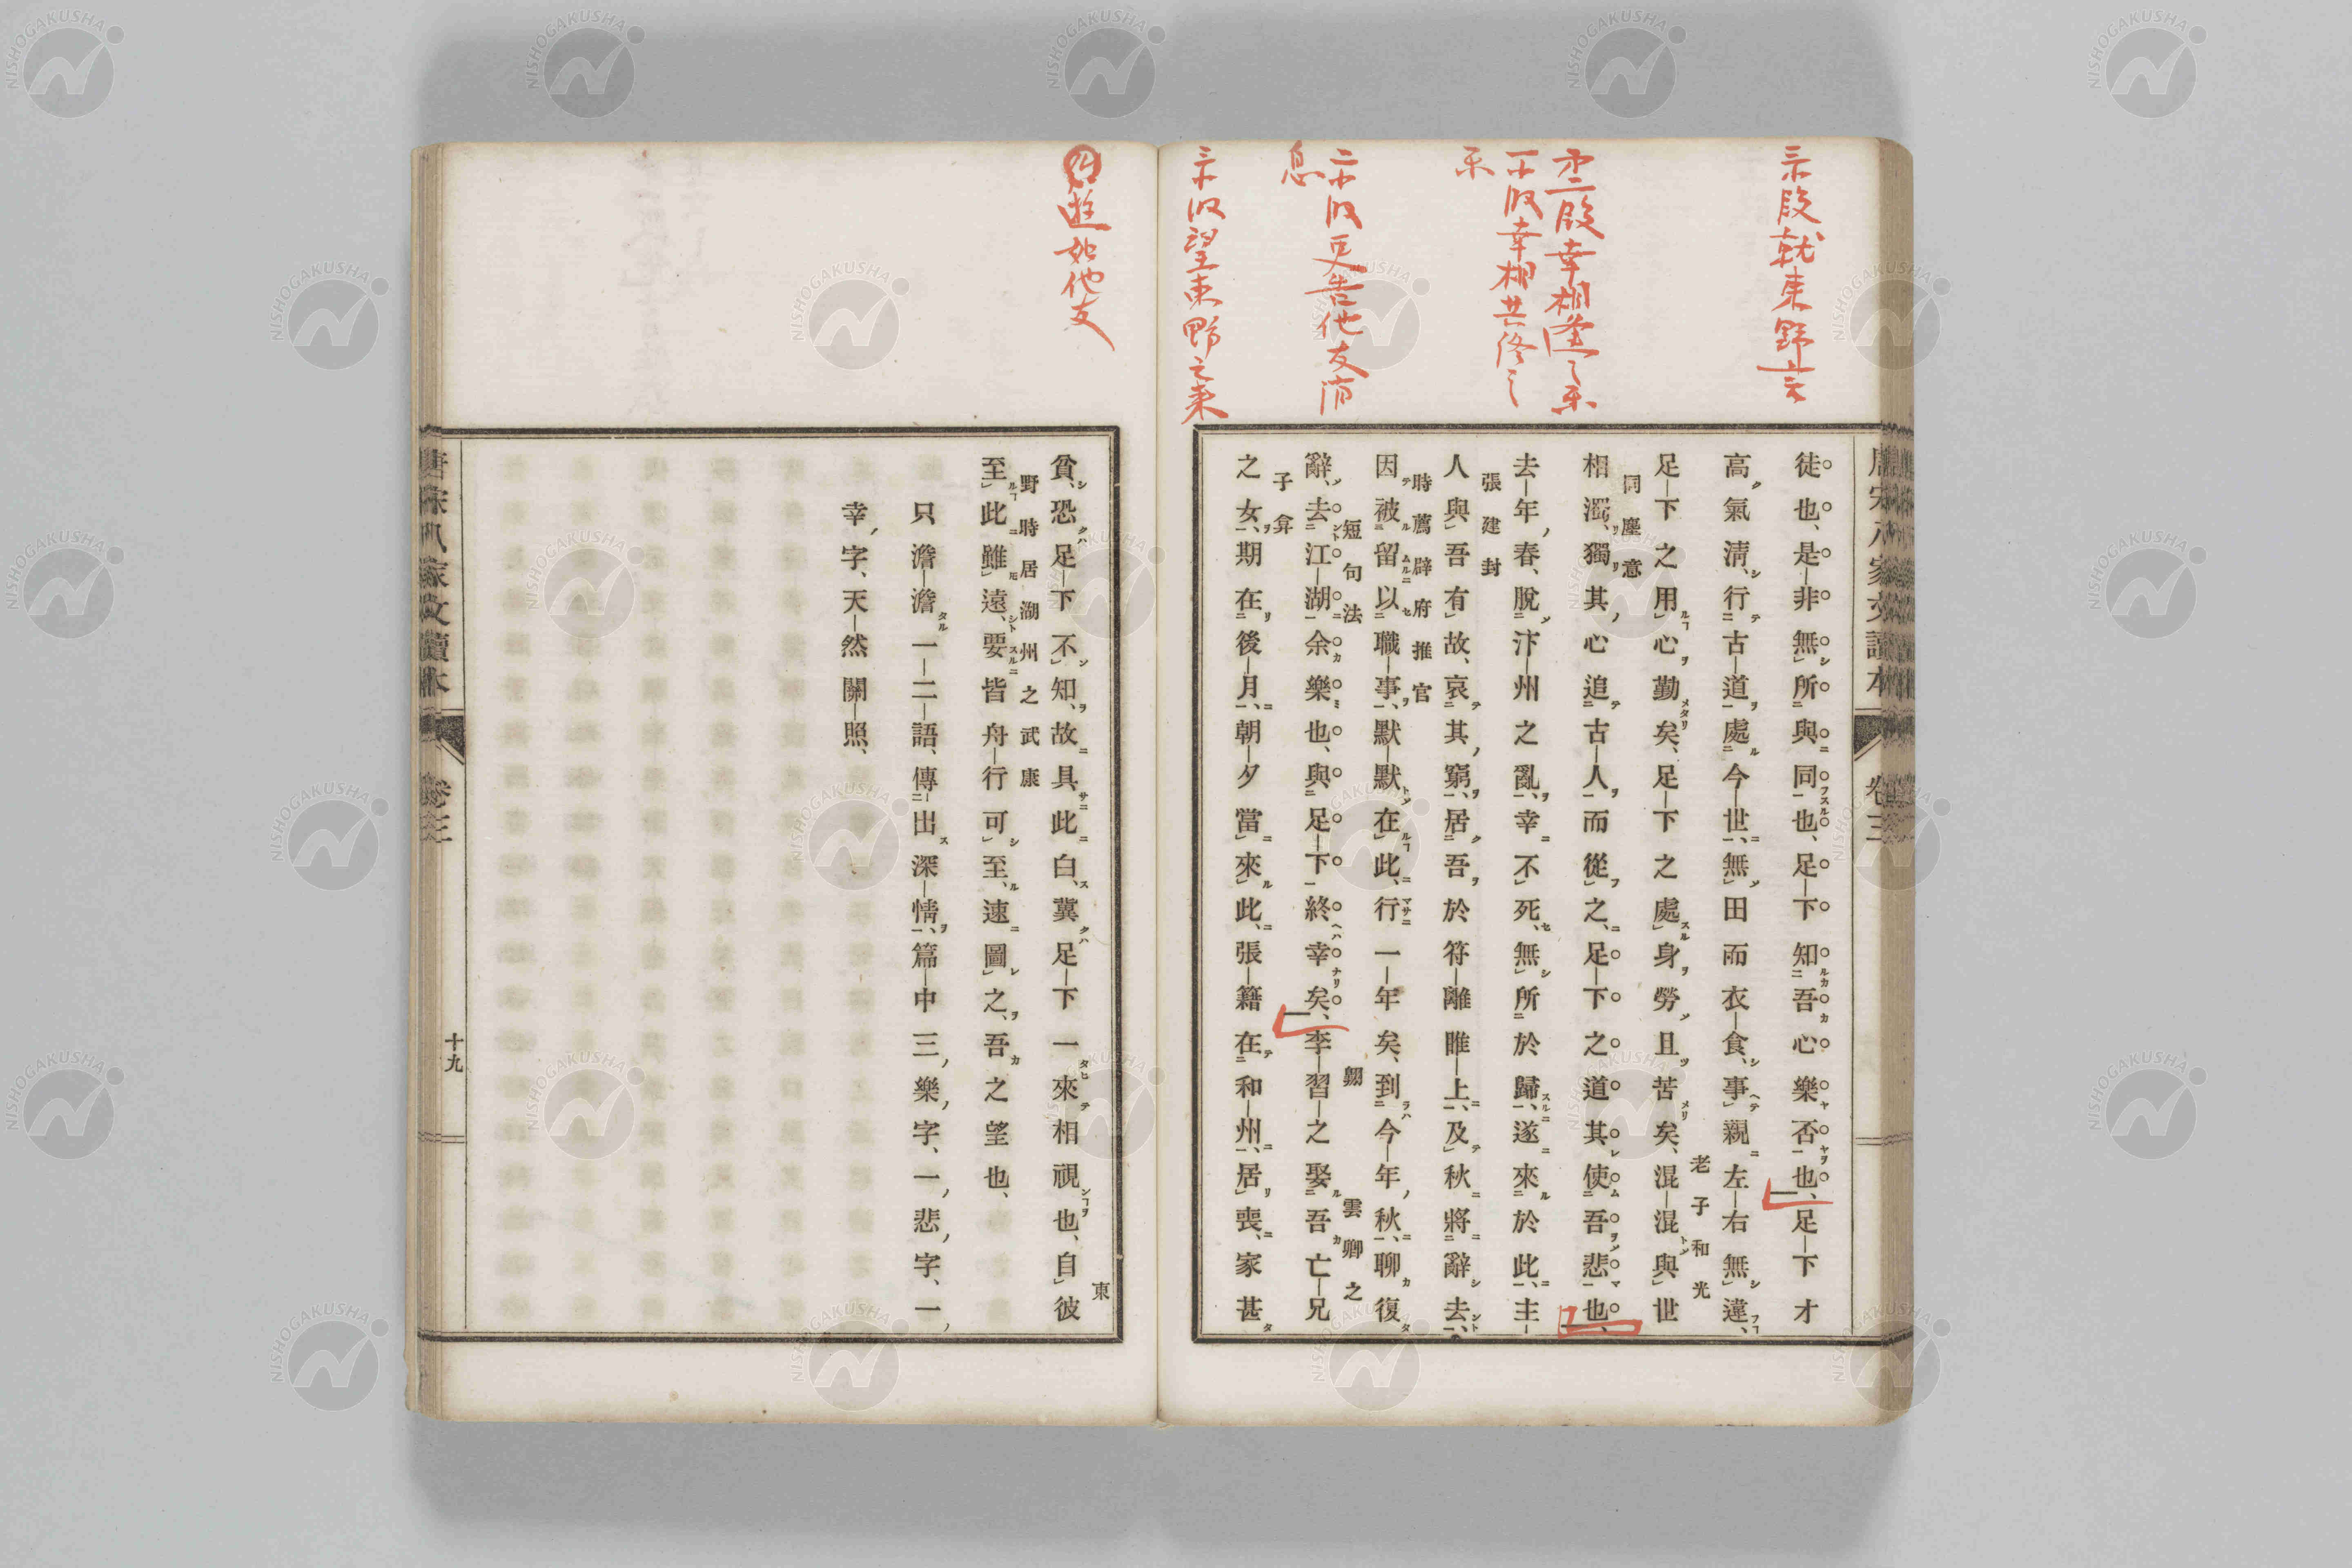 三小段就東野言
第二段幸相逢之樂
一小段幸相共終之
樂
二小段更告他友消
息
三小段望東野之來
唐宋八家文讀本 卷三
徒也、是非無所與同也、足下知吾心樂否也、足下才
高氣清、行古道處今世、無田而衣食、事親左右無違、
老子和光
足下之用心勤矣、足下之處身勞且苦矣、混混與世
同塵意
相濁、獨其心追古人而從之、足下之道其使吾悲也、
去年春、脫汴州之亂、幸不死、無所於歸、遂來於此、主
張建封
人與吾有故、哀其窮、居吾於符離睢上、及秋將辭去、
時薦辟府推官
因被留以職事、默默在此、行一年矣、到今年秋、聊復
短句法 翱 雲卿之
辭、去江湖余樂也、與足下終幸矣、李習之娶吾亡兄
子弇
之女、期在後月、朝夕當來此、張籍在和州、居喪、家甚
遊如他友
東
貧、恐足下不知、故具此白、冀足下一來相視也、自彼
野時居湖州之武康
至此雖遠、要皆舟行可至、速圖之、吾之望也、
只澹澹一二語、傳出深情、篇中三樂字、一悲字、一
幸字、天然關照、
唐宋八家文讀本 卷三 十九
NISHOGAKUSHA